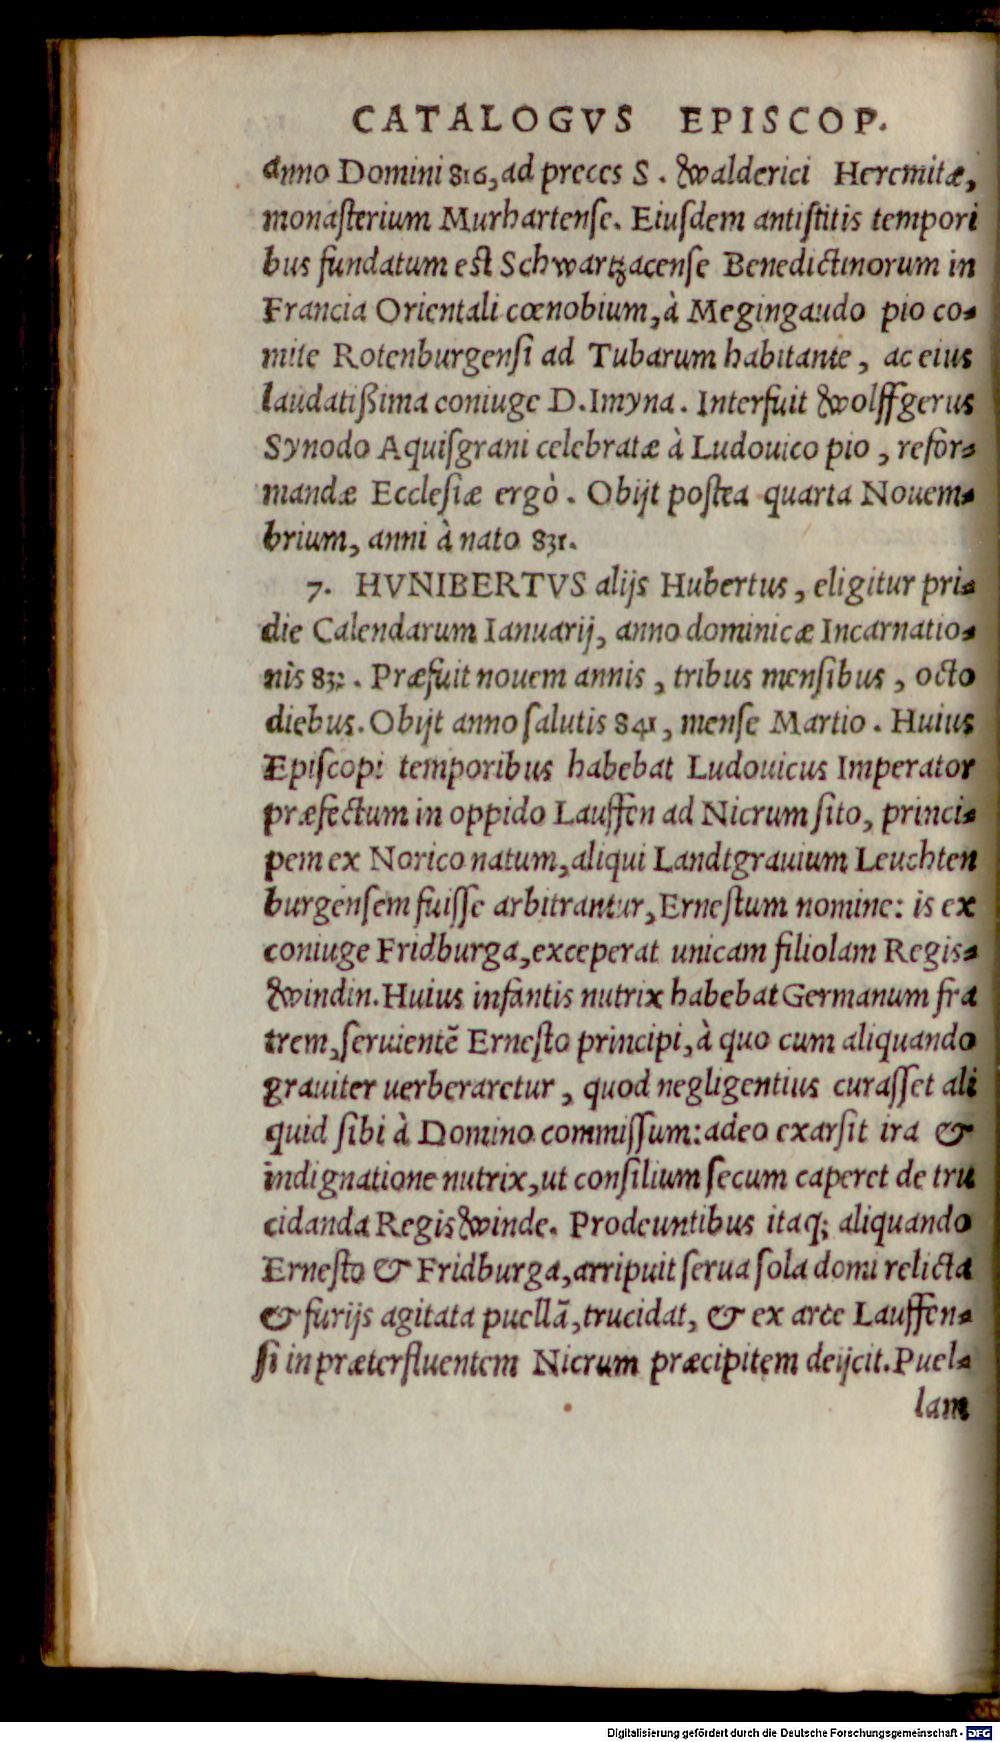 CATALOGVS EPISCOP.
anno Domini 816, ad preces S. Walderici Heremitæ,
monaſterium Murhartenſe. Eiuſdem antiſtitis tempori
bus fundatum eſt Schwartzacenſe Benedictinorum in
Francia Orientali cœnobium, à Megingaudo pio co-
mite Rotenburgenſi ad Tubarum habitante, ac eius
laudatißima coniuge D. Imyna. Interfuit Wolffgerus
Synodo Aquiſgrani celebratæ à Ludouico pio, refor-
mandæ Eccleſiæ ergò. Obijt poſtea quarta Nouem-
brium, anni à nato 831.
7. HVNIBERTVS alijs Hubertus, eligitur pri-
die Calendarum Ianuarij, anno dominicæ Incarnatio-
nis . Præfuit nouem annis, tribus menſibus, octo
diebus. Obijt anno ſalutis 841, menſe Martio. Huius
Epiſcopi temporibus habebat Ludouicus Imperator
præfectum in oppido Lauffen ad Nicrum ſito, princi-
pem ex Norico natum, aliqui Landtgrauium Leuchten
burgenſem fuiſſe arbitrantur, Erneſtum nomine: is ex
coniuge Fridburga, exceperat unicam filiolam Regis-
windin. Huius infantis nutrix habebat Germanum fra
trem, ſeruientē Erneſto principi, à quo cum aliquando
grauiter uerberaretur, quod negligentius curaſſet ali
quid ſibi à Domino commiſſum: adeo exarſit ira &
indignatione nutrix, ut conſilium ſecum caperet de tru
cidanda Regiswinde. Prodeuntibus itaq; aliquando
Erneſto & Fridburga, arripuit ſerua ſola domi relicta
& furijs agitata puellā, trucidat, & ex arce Lauffen-
ſi in præterfluentem Nicrum præcipitem deijcit. Puel-
lam
Digitalisierung gefördert durch die Deutsche Forschungsgemeinschaft - DFG